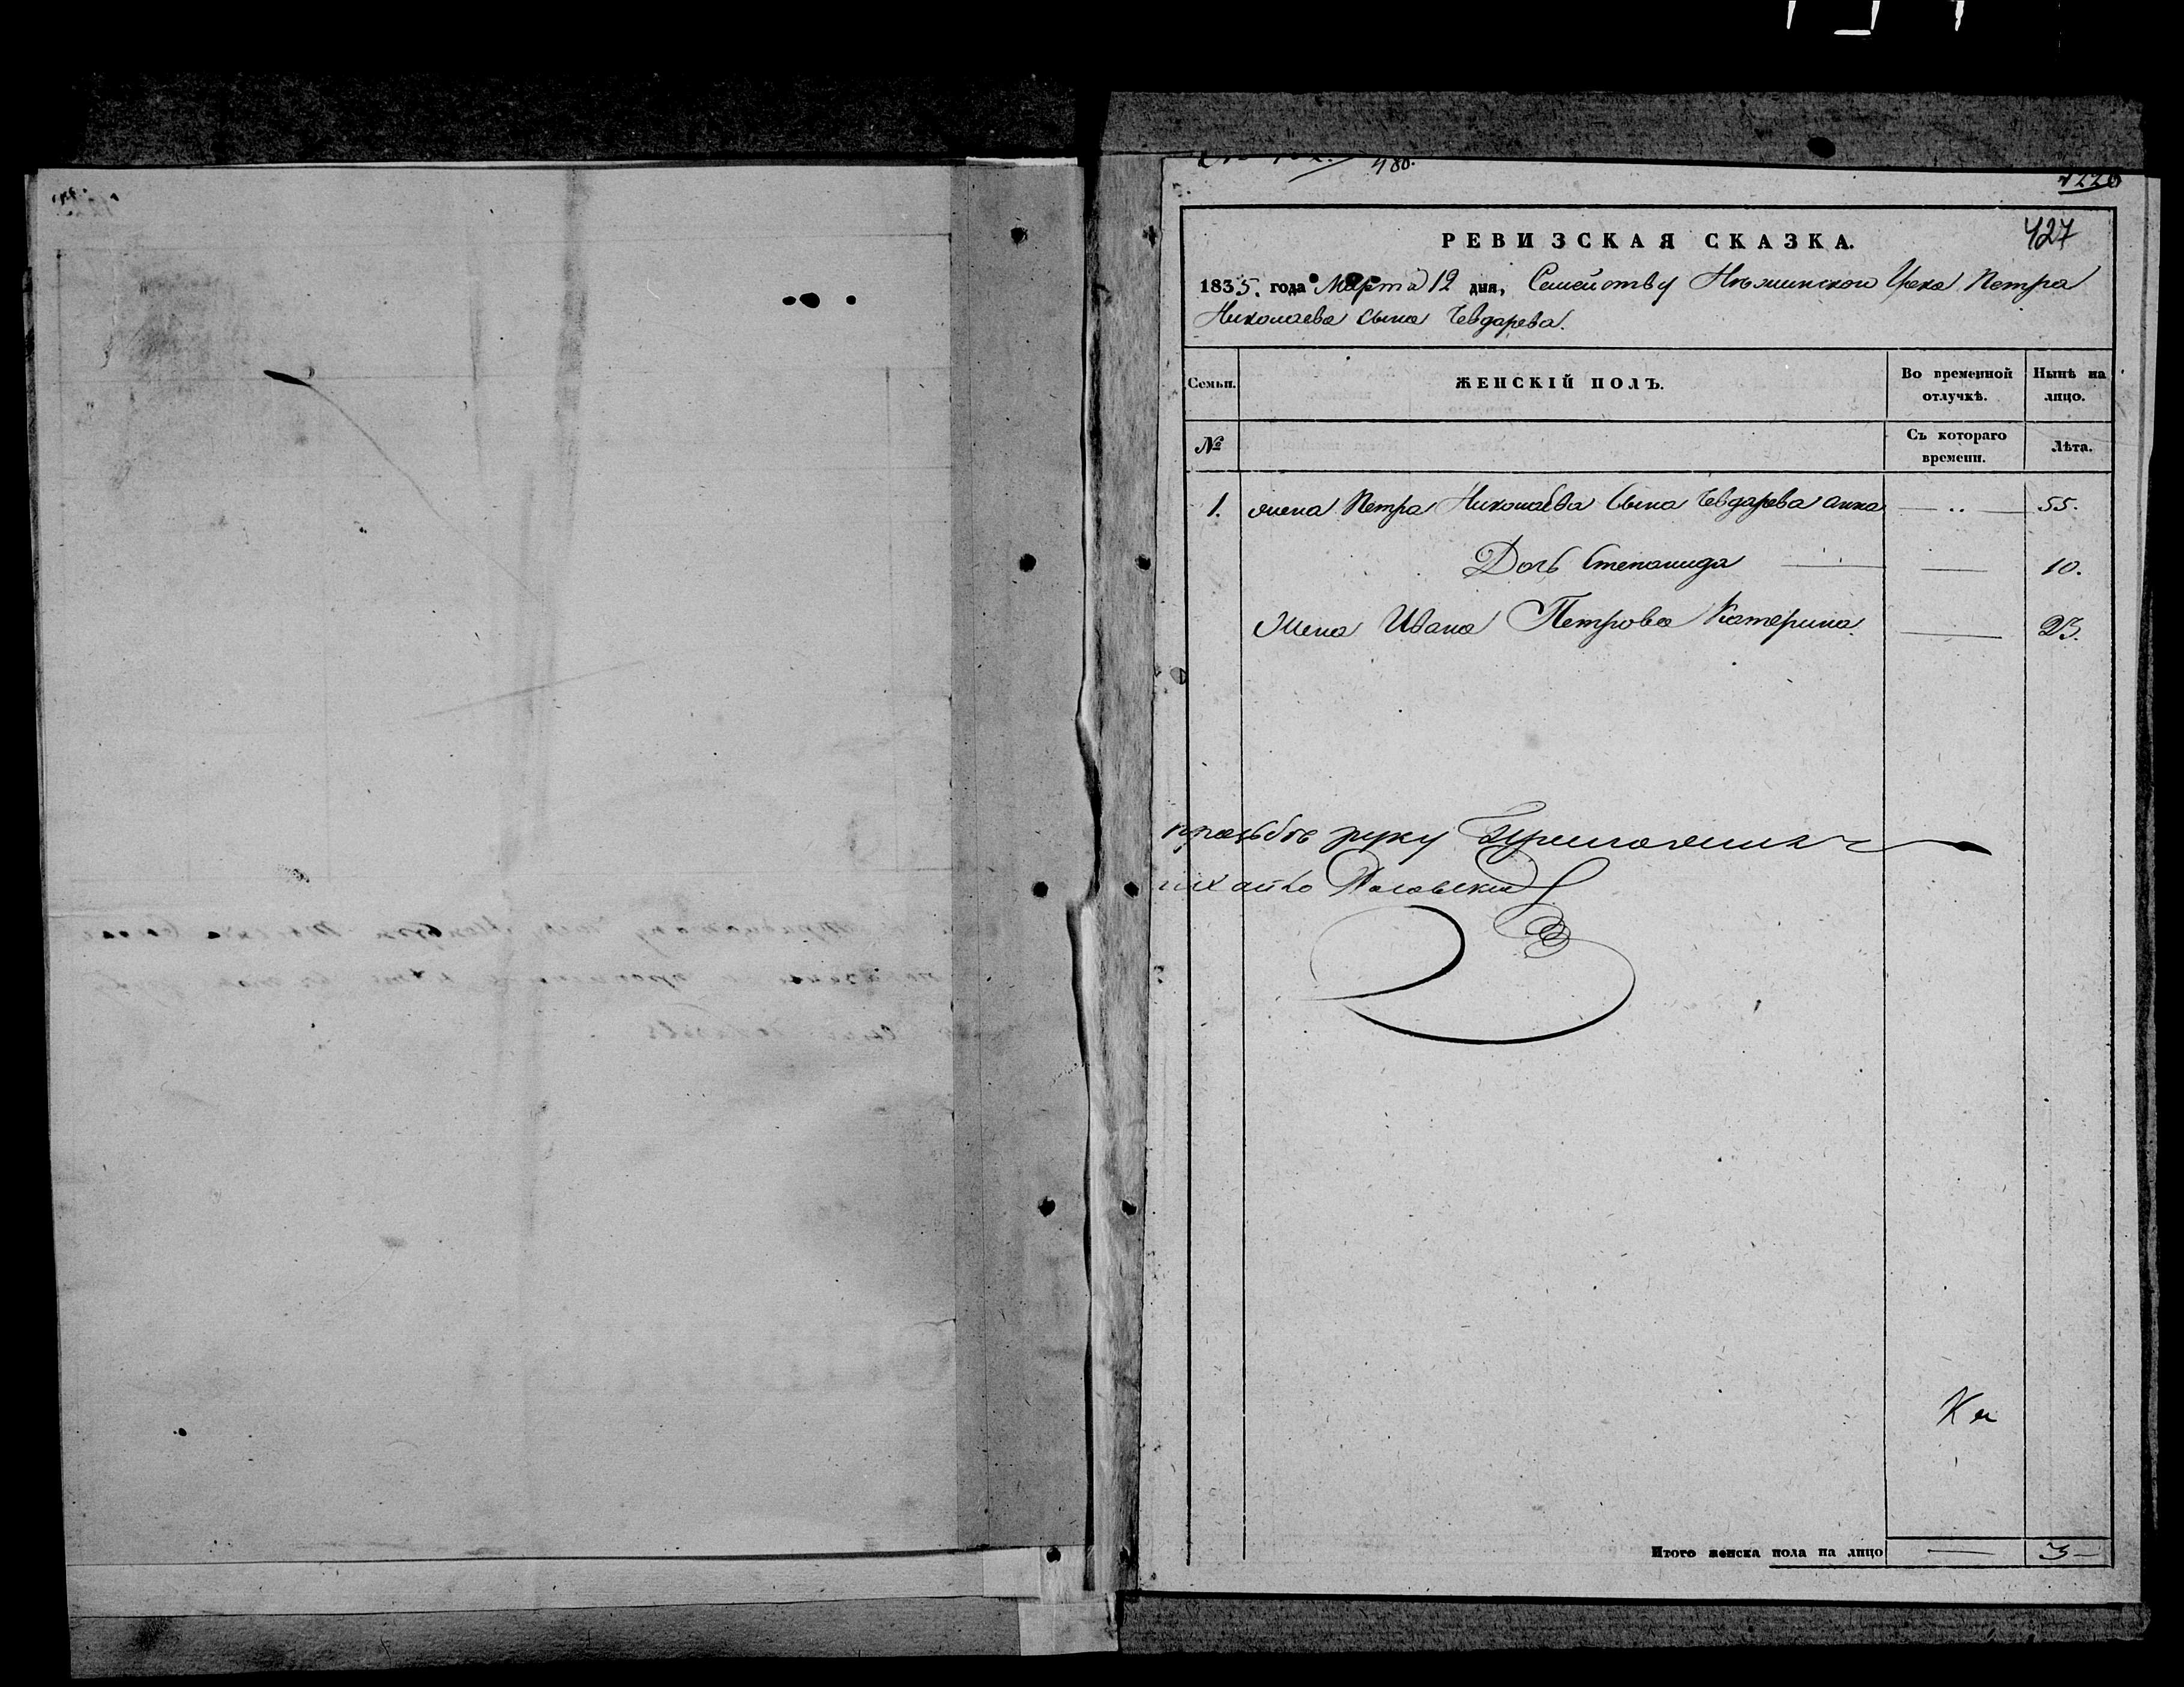 480.
427
РЕВИЗСКАЯ СКАЗКА.
1835. года Марта 12 дня, Семейству Нѣжинскои Грека Петра
Николаева сына Чевдарева.
Семьи.
ЖЕНСКІЙ ПОЛЪ.
Во временной отлучкѣ.
Нынѣ на лицо.
№
Съ котораго времени.
Лѣта.
1. жена Петра Николаева Сына Чевдарева анна — 55.
Дочь Степанида — 10.
Жена Ивана Петрова Катерина. — 23.
прозьбѣ руку
Итого женска пола на лицо — 3 —